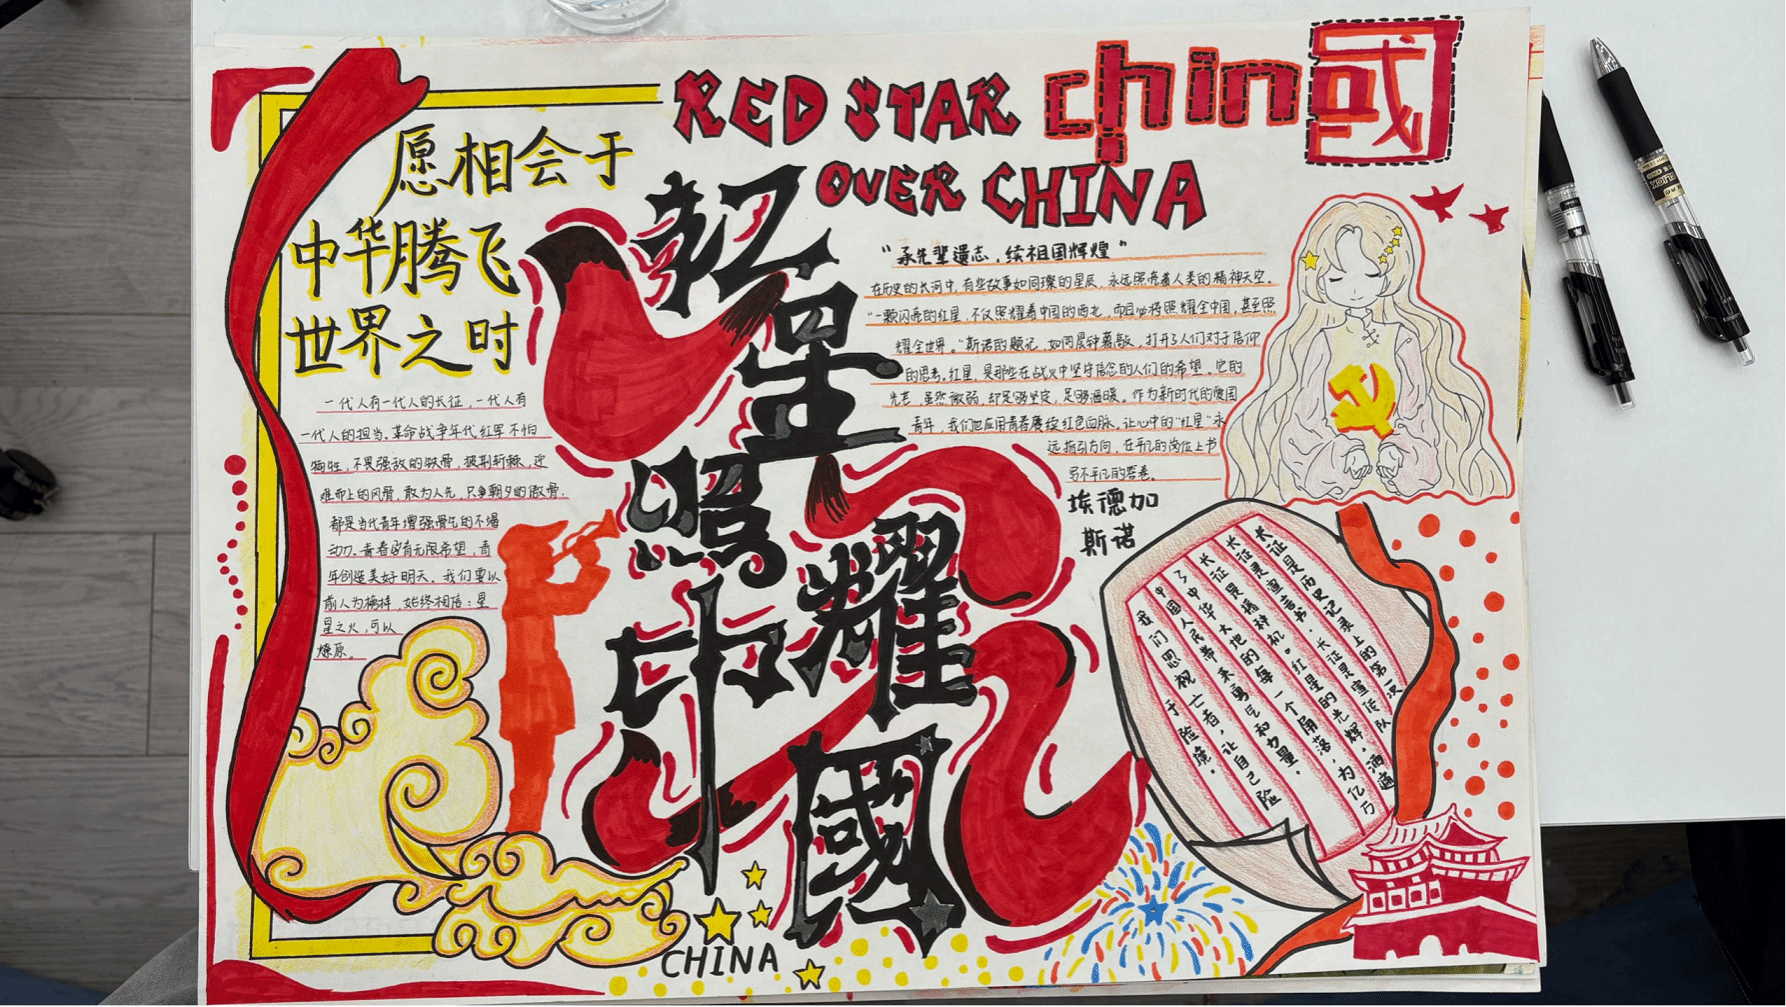 RED STAR
OVER CHINA
chin国
愿相会于
中华腾飞
世界之时
红星
照耀
中國
一代人有一代人的长征，一代人有
一代人的担当。革命战争年代红军不怕
牺牲，不畏强敌的傲骨，披荆斩棘，迎
难而上的风骨，敢为人先，只争朝夕的傲骨，
都是当代青年增强骨气的不竭
动力。青春孕育无限希望，青
年创造美好明天。我们要以
前人为榜样，始终相信：星
星之火，可以
燎原。
“承先辈遗志，续祖国辉煌”
在历史的长河中，有些故事如同璀的星辰，永远照亮着人类的精神天空。
“一颗闪亮的红星，不仅照耀着中国的西北，而且必将照耀全中国，甚至照
耀全世界。”斯诺的题记，如同晨钟暮鼓，打开了人们对于信仰
的思考。红星，是那些在战火中坚守信念的人们的希望。它的
光芒，虽然微弱，却足够坚定，足够温暖。作为新时代的爱国
青年，我们也应用青春赓续红色血脉，让心中的“红星”永
远指引方向，在平凡的岗位上书
写不平凡的答卷。
埃德加
斯诺
长征是历史记录上的第一次
长征是宣言书，长征是宣传队
长征是播种机。红星的光辉，洒遍
了中华大地的每一个角落，为亿万
中国人民带来勇气和力量。
我们忽视亡者，让自己险
于险境。
CHINA